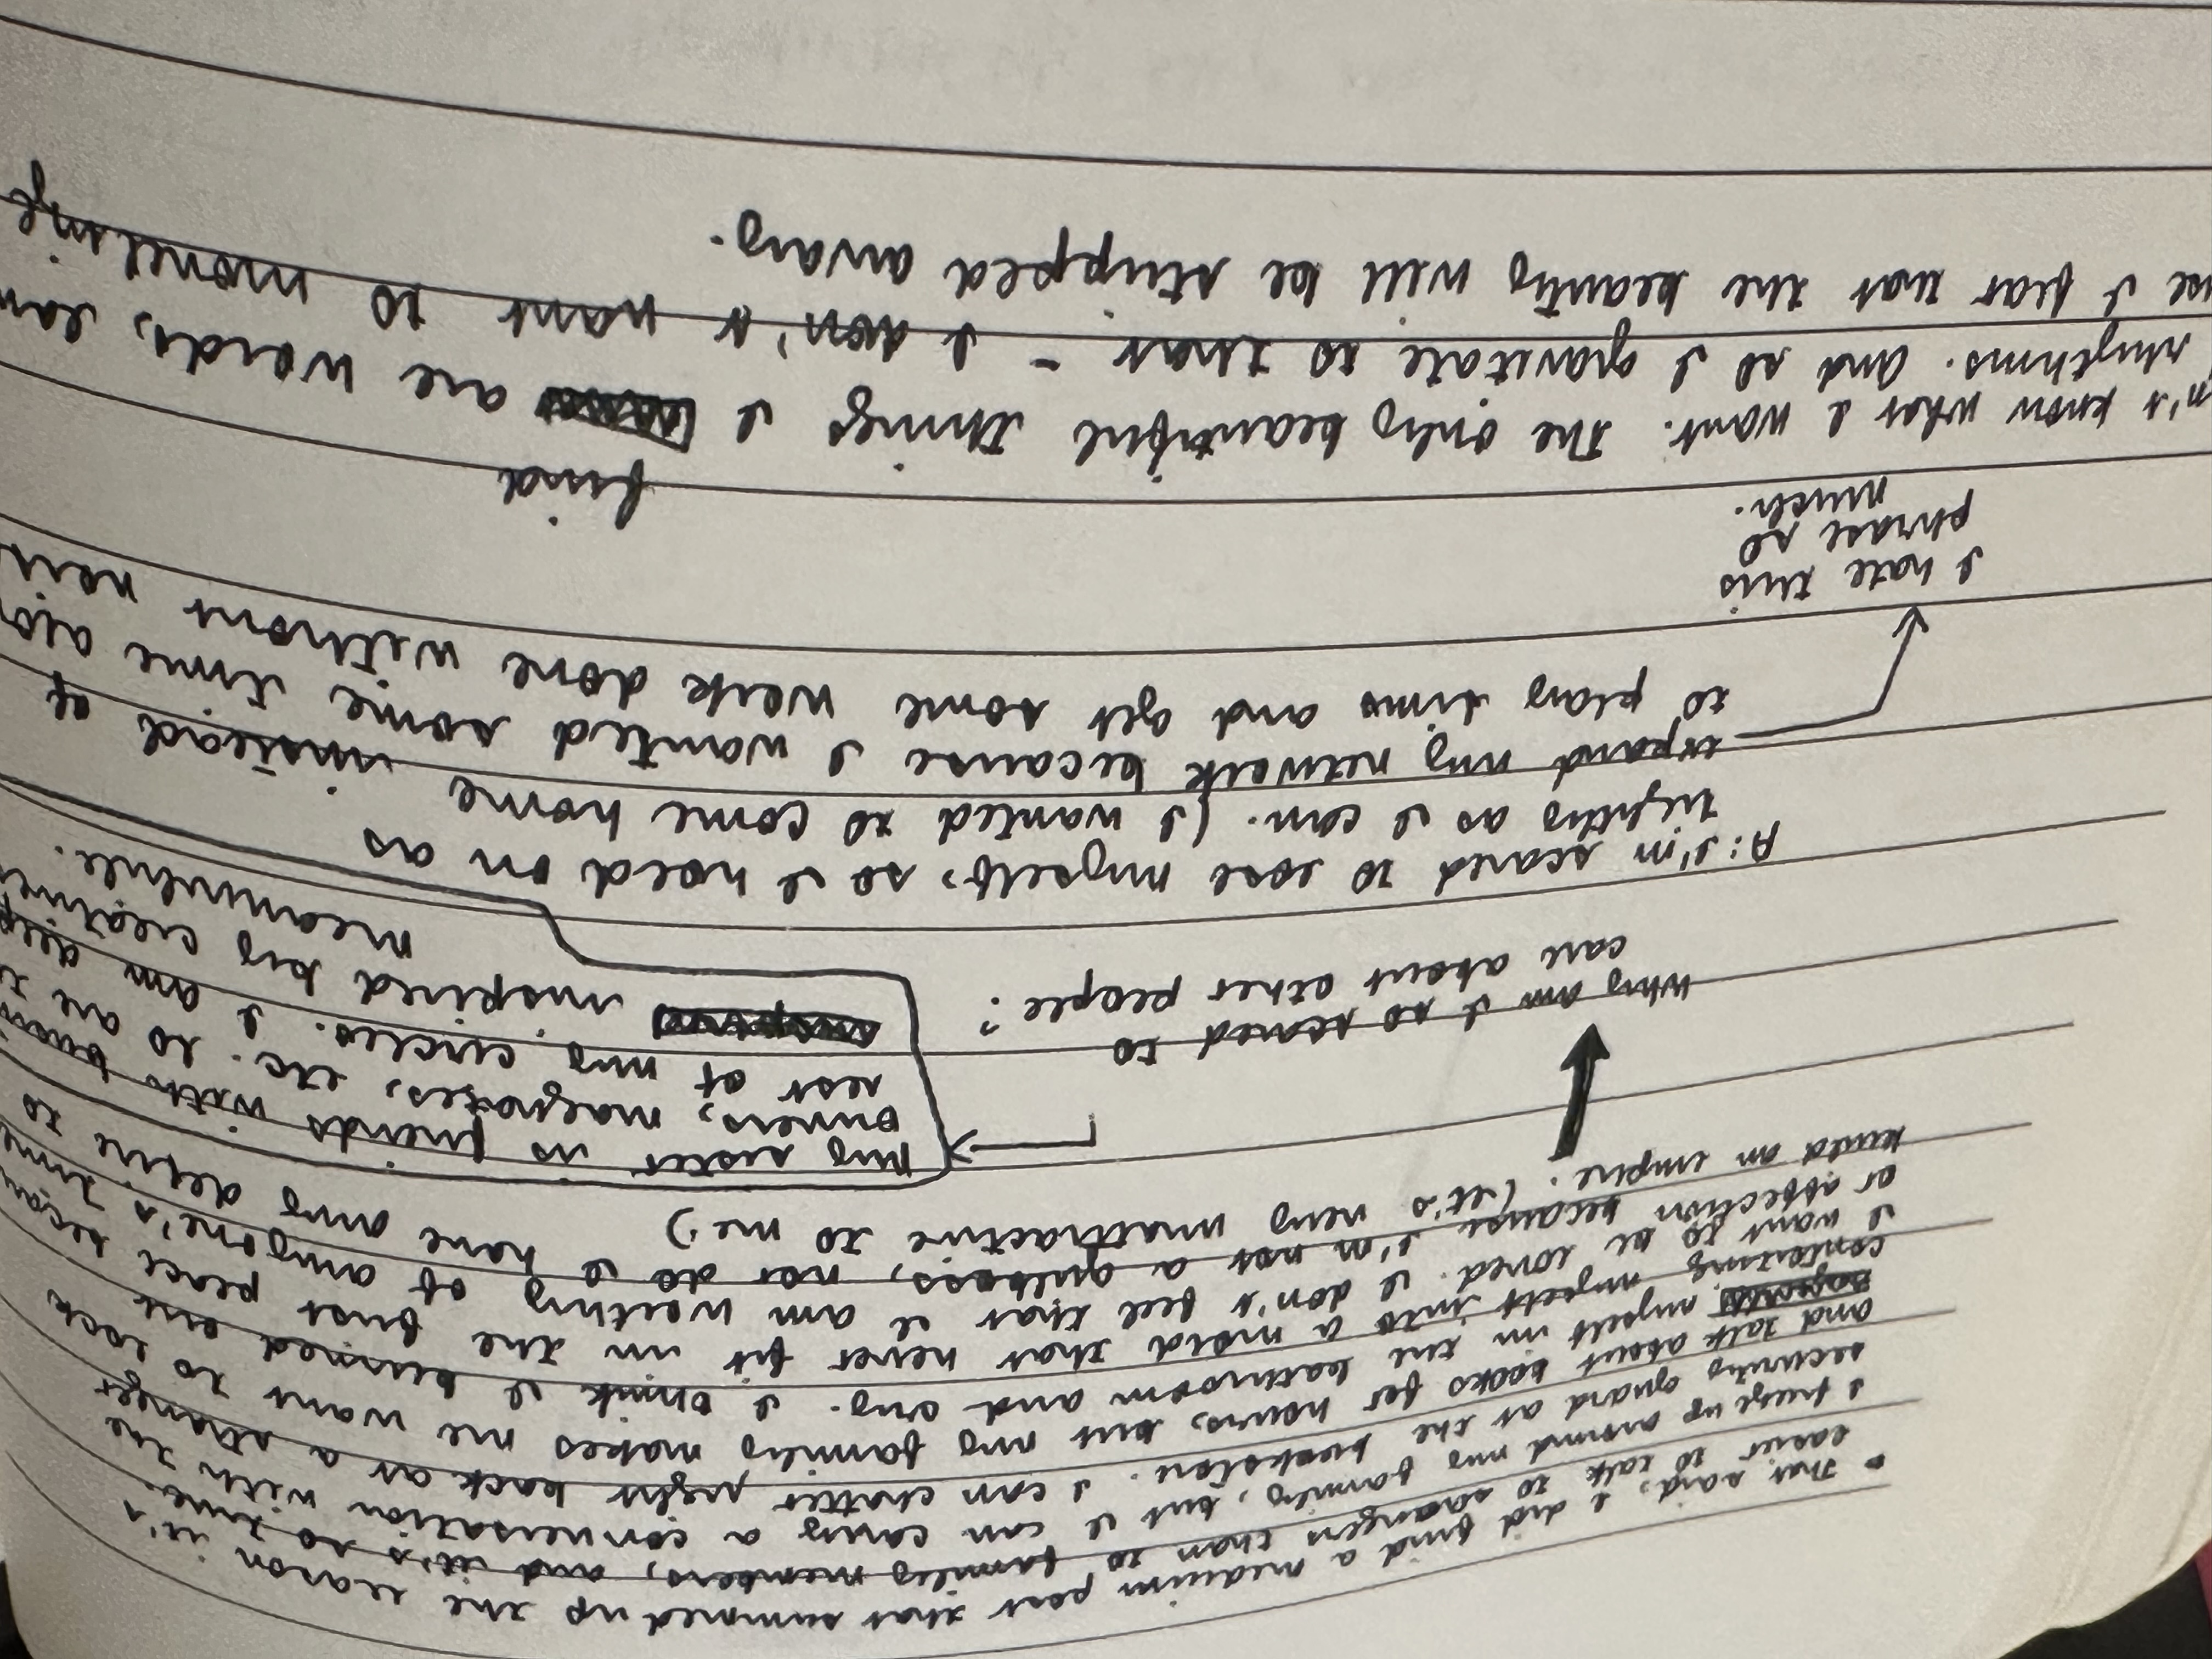 • That said, I did find a medium post that summed up the reason it's
easier to talk to strangers than to family members, and it's so true.
I freeze up around my family, but I can carry a conversation with the
security guard at the bookstore. I can chatter right back at a stranger
and talk about books for hours, but my family makes me want to lock
myself in the bathroom and cry. I think I burned out
contorting myself into a mold that never fit in the first place
I want to be loved. I don't feel that I am worthy of anyone's time
or affection because I'm not a girlboss, nor do I have any desire to
build an empire. (it's very unattractive to me)
My sister is friends with
owners, magnates, etc. so are
rest of my circles. I am
inspired by
meanwhile.
Why am I so scared to
care about other people?
A: I'm scared to lose myself, so I hold on as
tightly as I can. (I wanted to come home instead of
expand my network because I wanted some time
to play sims and get some work done without
I hate this
phrase so
much.
find
know what I want. The only beautiful things I are words,
rhythms. And so I gravitate to that - I don't want to monetize
I fear that the beauty will be stripped away.